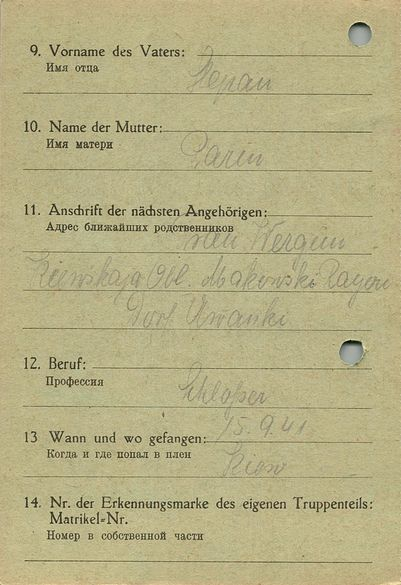 9. Vorname des Vaters:
Имя отца
Stepan
10. Name der Mutter:
Имя матери
11. Anschrift der nächsten Angehörigen:
Адрес ближайших родственников
Wergun
Kiewskaja Obl. Makowski Rayon
Dorf
12. Beruf:
Профессия
Schloßer
13 Wann und wo gefangen: 15.9.41
Когда и где попал в плен
Kiew
14. Nr. der Erkennungsmarke des eigenen Truppenteils:
Matrikel-Nr.
Номер в собственной части